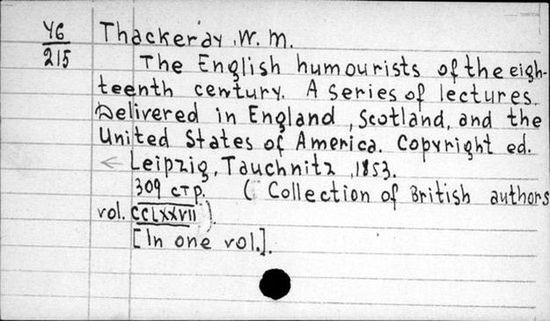 У6
215
Thackeray, W. M.
The English humourists of the eigh-
teenth century. A series of lectures.
Delivered in England, Scotland, and the
United States of America. Copyright ed.
← Leipzig, Tauchnitz, 1853.
309 стр. (Collection of British authors
vol. CCLXXVII)
[In one vol.].